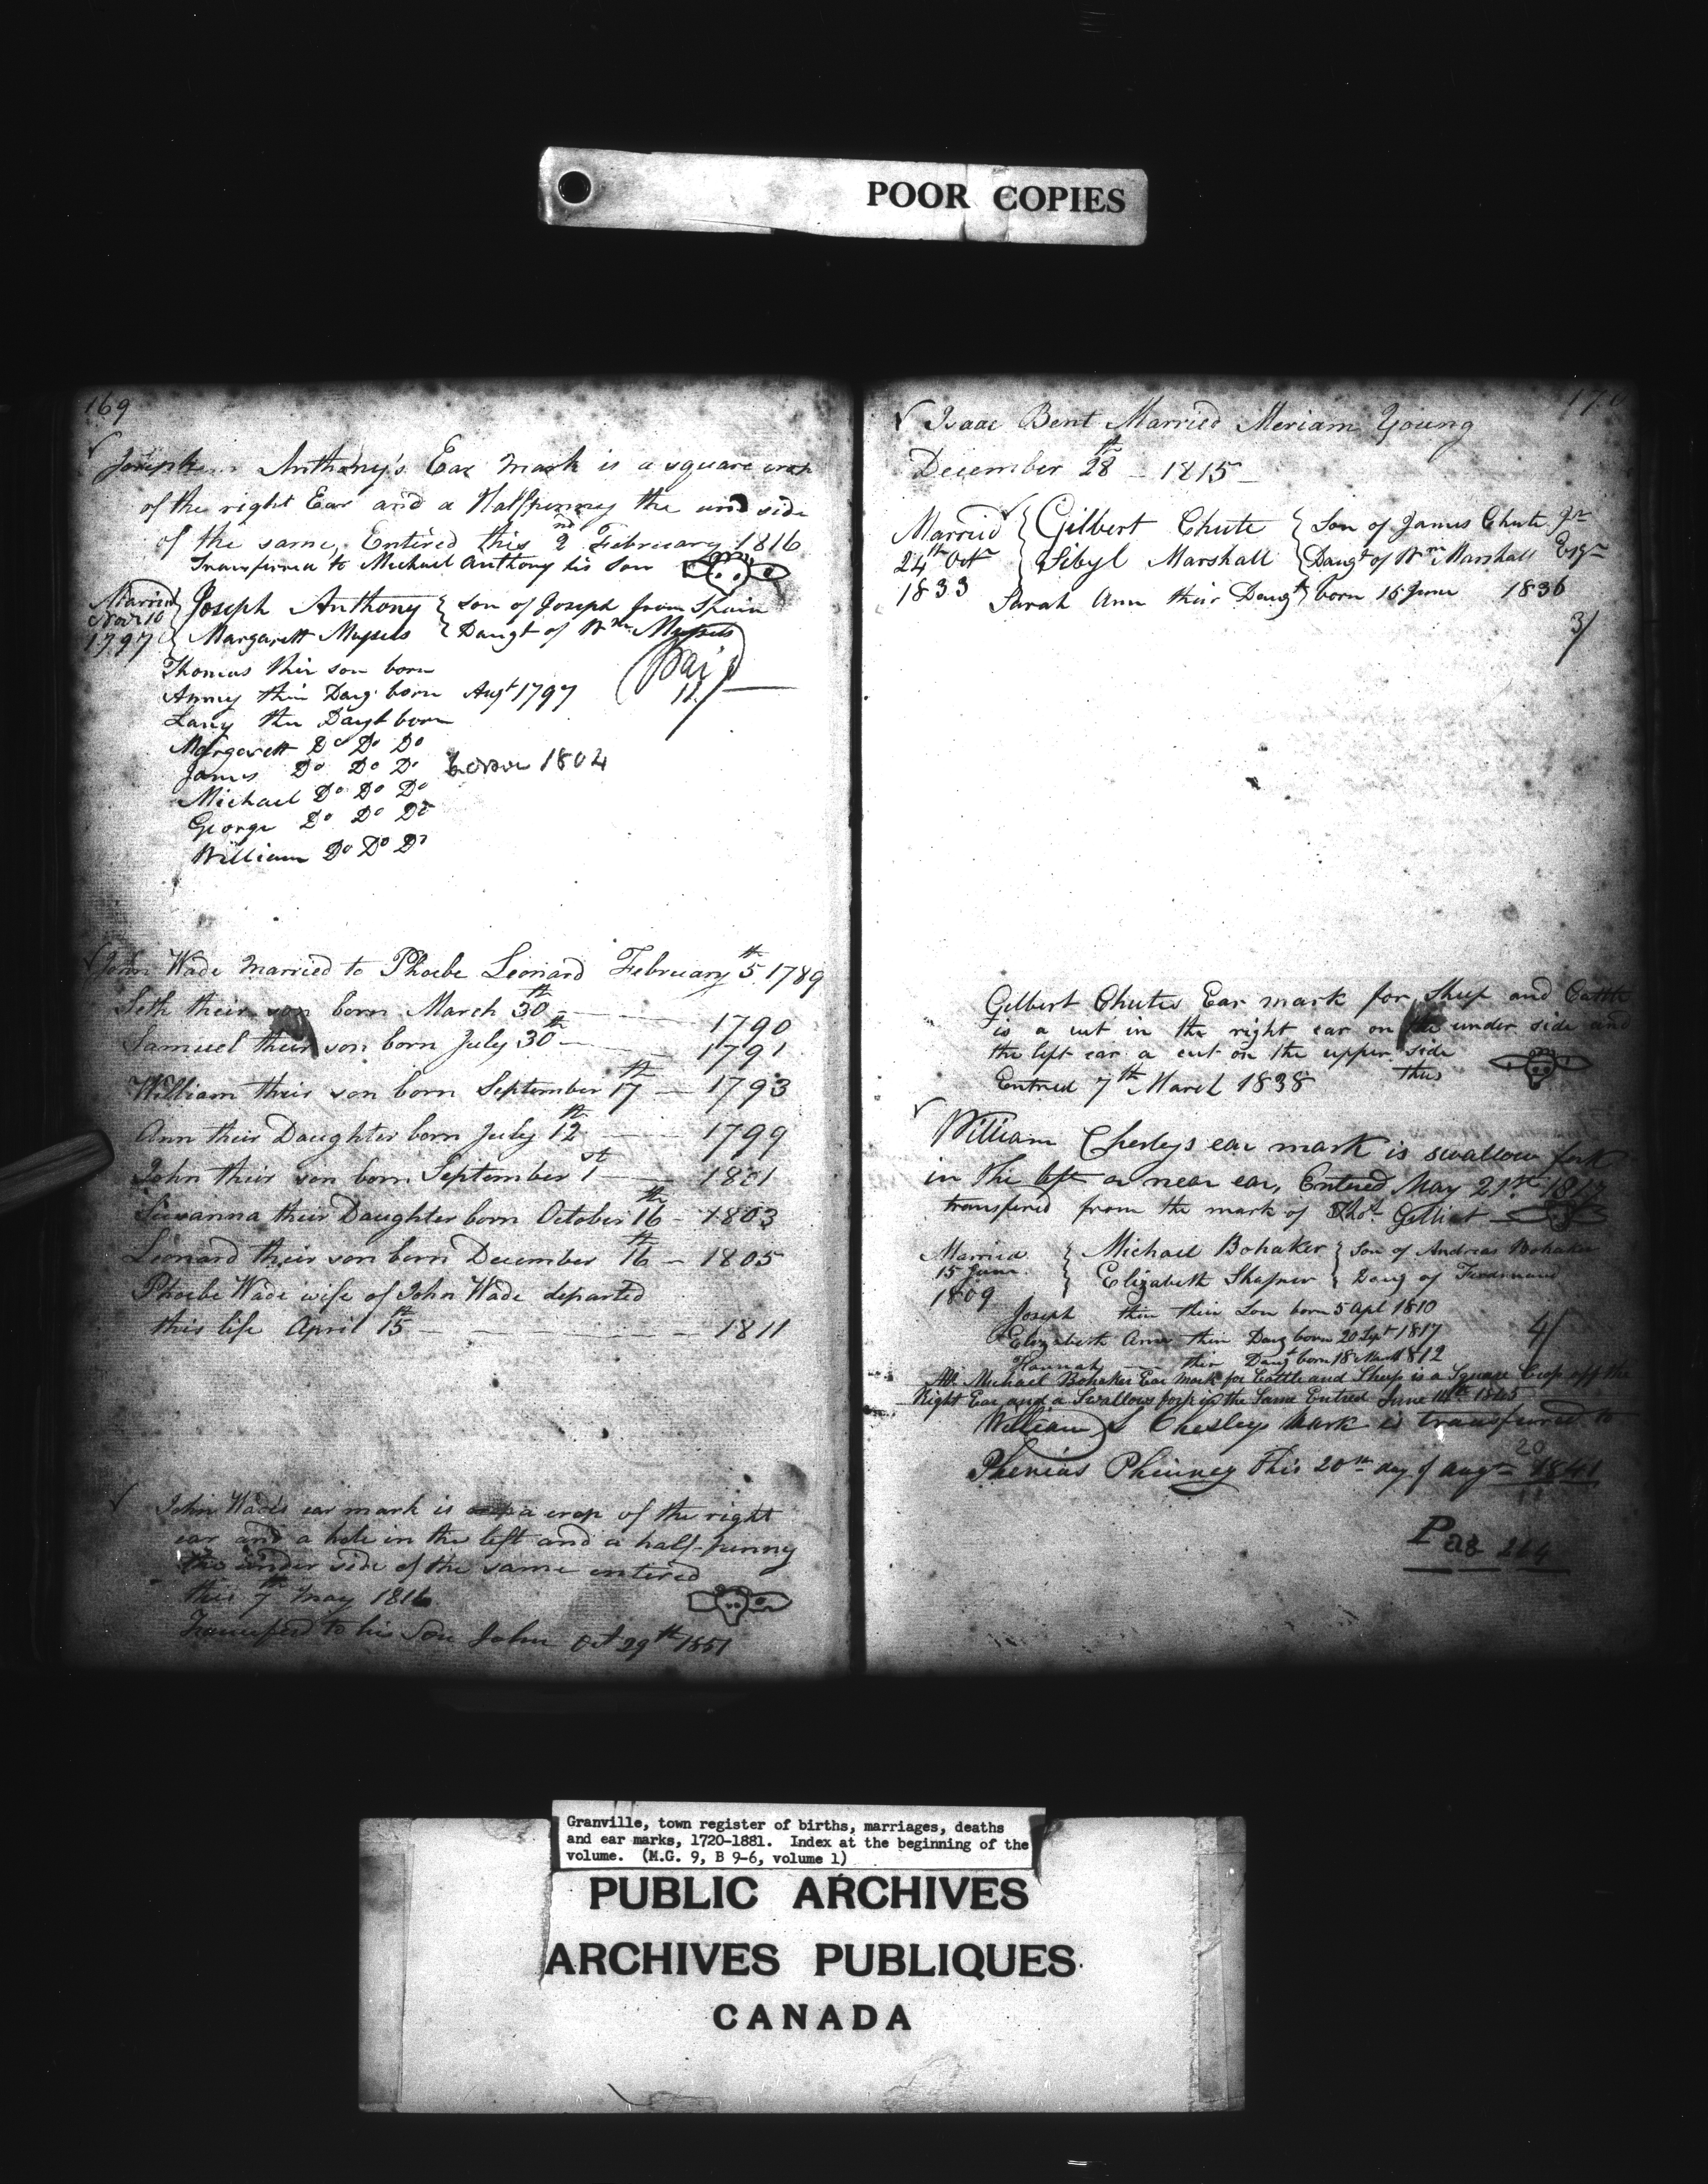 POOR COPIES
169
Joseph Anthony's Ear mark is a square crop
of the right Ear and a Halfpenny the und side
of the same, Entered this 2nd February 1816
Transferred to Michael Anthony his Son
Married Nov 10 1797 { Joseph Anthony { Son of Joseph from Spain
{ Margarett { Daugt of Wm
Thomas thir son born
Anney thir Daug born Augt 1797
Paid 11/
Lany the Daugt born
Margarett Do Do Do
James Do Do Do born 1804
Michael Do Do Do
George Do Do Do
William Do Do Do
John Wade married to Phoebe Leonard February 5th 1789
Seth their son born March 30th 1790
Samuel their son born July 30th 1791
William their son born September 17th 1793
Ann their Daughter born July 12th 1799
John their son born September 1st 1801
Susanna their Daughter born October 16th 1803
Leonard their son born December 16th 1805
Phoebe Wade wife of John Wade departed
this life April 15th 1811
John Wade's ear mark is a crop of the right
ear and a hole in the left and a half-penny
the under side of the same entered
this 7th may 1816
Transferd to his Son John Oct 29th 1851
170
Isaac Bent Married Meriam Young
December 28th - 1815
Married { Gilbert Chute { Son of James Chute Jr
24th Octr { Sibyl Marshall { Daugt of Wm Marshall Esqr
1833 Sarah Ann their Daugt born 15 June 1836
3/
Gilbert Chutes Ear mark for Sheep and Cattle
is a cut in the right ear on the under side and
the left ear a cut on the upper side
Entred 7th March 1838 thus
William Chesleys ear mark is swallow fork
in the left or near ear, Entered May 21st 1817
transfered from the mark of Thos. Gilliat
Married { Michael Bohaker { Son of Andreas Bohaker
15 June { Elizabeth Shafner { Daug of Ferdinand
1809
Joseph thir their Son born 5 Apl 1810
Elizabeth Ann thir Daug born 20 Sept 1817
4/
Hannah thir Daugt born 18 March 1812
Michael Bohaker Ear Mark for Cattle and Sheep is a Square Crop off the
Right Ear and a Swallow fork in the Same Entred June 14th
William S Chesleys Mark is transferred to
Phenias Phinney This 20th day of augt 1841
Pae 264
Granville, town register of births, marriages, deaths
and ear marks, 1720-1881. Index at the beginning of the
volume. (M.G. 9, B 9-6, volume 1)
PUBLIC ARCHIVES
ARCHIVES PUBLIQUES
CANADA